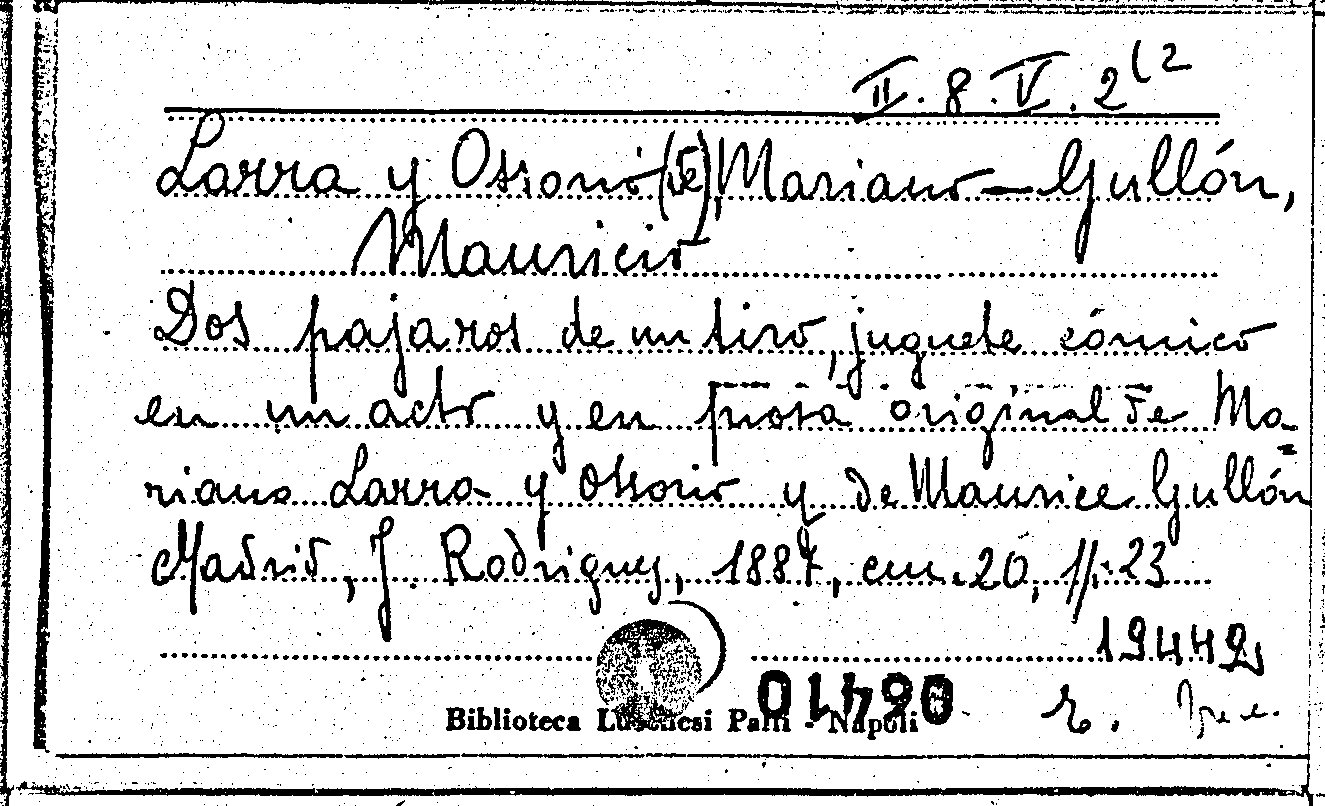 II. 8. V. 2(2
Larra y Ossorio (de), Mariano - Gullón,
Mauricio
Dos pajaros de un tiro, juguete cómico
en un acto y en prosa original de Ma=
riano Larra y Ossorio y de Maurice Gullón
Madrid, J. Rodriguez, 1887, cm. 20, pp. 23
19442
Biblioteca Lucchesi Palli - Napoli